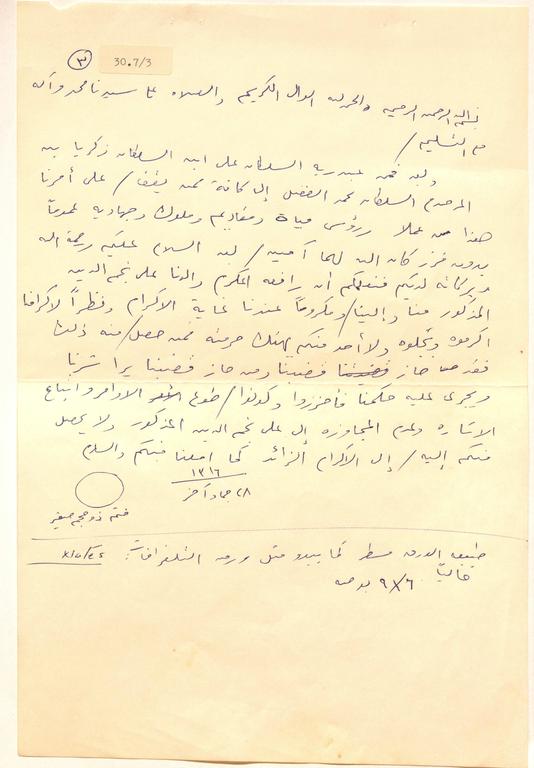 ٣
30.7/3
بسم الله الرحمن الرحيم والحمد لله الوالي الكريم والصلاه على سيدنا محمد وآله
مع التسليم/
وبعد فمن عبد ربه السلطان علي ابن السلطان زكريا بن
المرحوم السلطان محمد الفضل إلى كافة من يقف/ على أمرنا
هذا من عملا ورؤس مياة ومقاديم وملوك وجهاديه عموماً
بدون فرز كان الله لهما آمين/ بعد السلام عليكم رحمة الله
وبركاته لديكم فنعلمكم أن رافعه المكرم والدنا علي نجم الدين
المذكور منا وإلينا/ ومكروماً عندنا غاية الأكرام ونظراً لاكرامنا
اكرموه وبجلوه ولا أحد منكم يهتك حرمته فمن حصل/ منه ذلك
فقد حاز غضبنا ومن حاز غضبنا برا شرنا
ويجرى عليه حكمنا فأحزروا وكونوا/ طوع الاوامر واتباع
الاشاره وعدم المجاوزه إلى علي نجم الدين المذكور ولا يحصل
منكم إليه/ إلى الأكرام الزائد كما امعنا منكم والسلام
١٣١٦
٢٨ جماد آخر
ختم ذو حجم صغير
طبيعه الورق مسطر كما يبدو مثل ورق التلغرافات
حالياً
٩X٦ بوصه